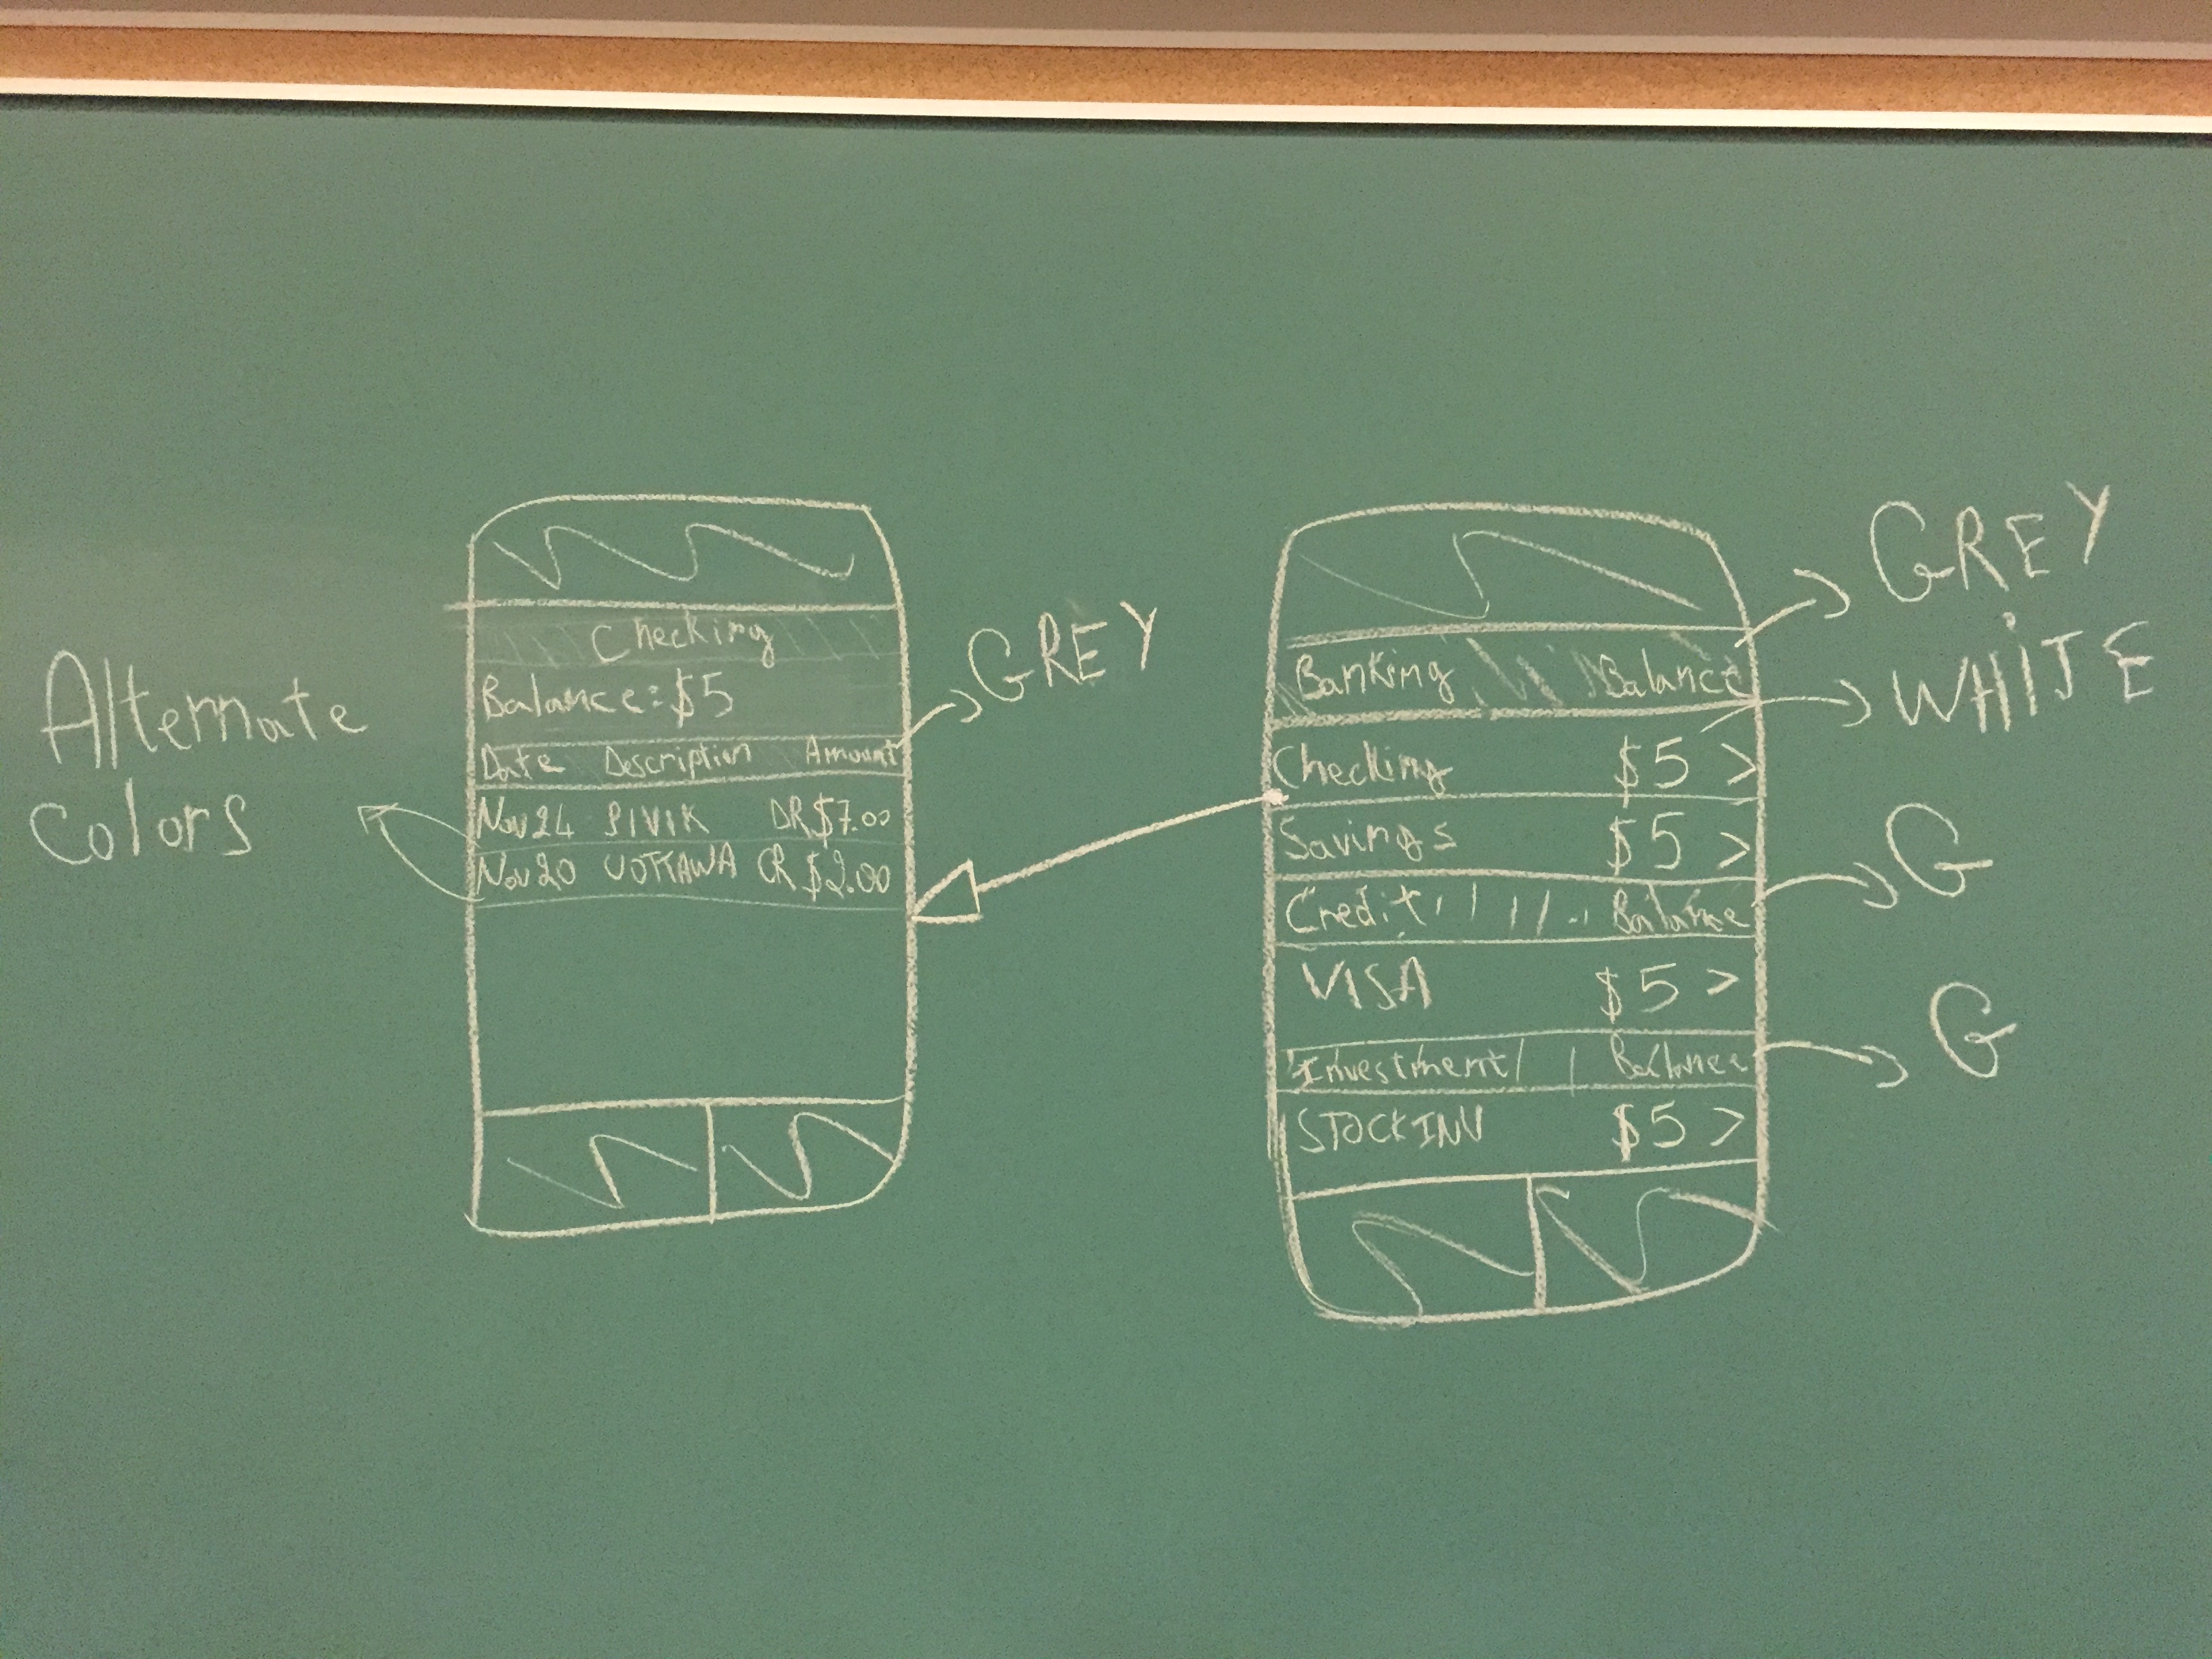 Alternate
Colors
Checking
Balance: $5
Date Description Amount
Nov 24 PIVIK DR $7.00
Nov 20 UOTTAWA CR $2.00
GREY
Banking Balance
Checking $5 >
Savings $5 >
Credit Balance
VISA $5 >
Investment Balance
STOCKINV $5 >
GREY
WHITE
G
G